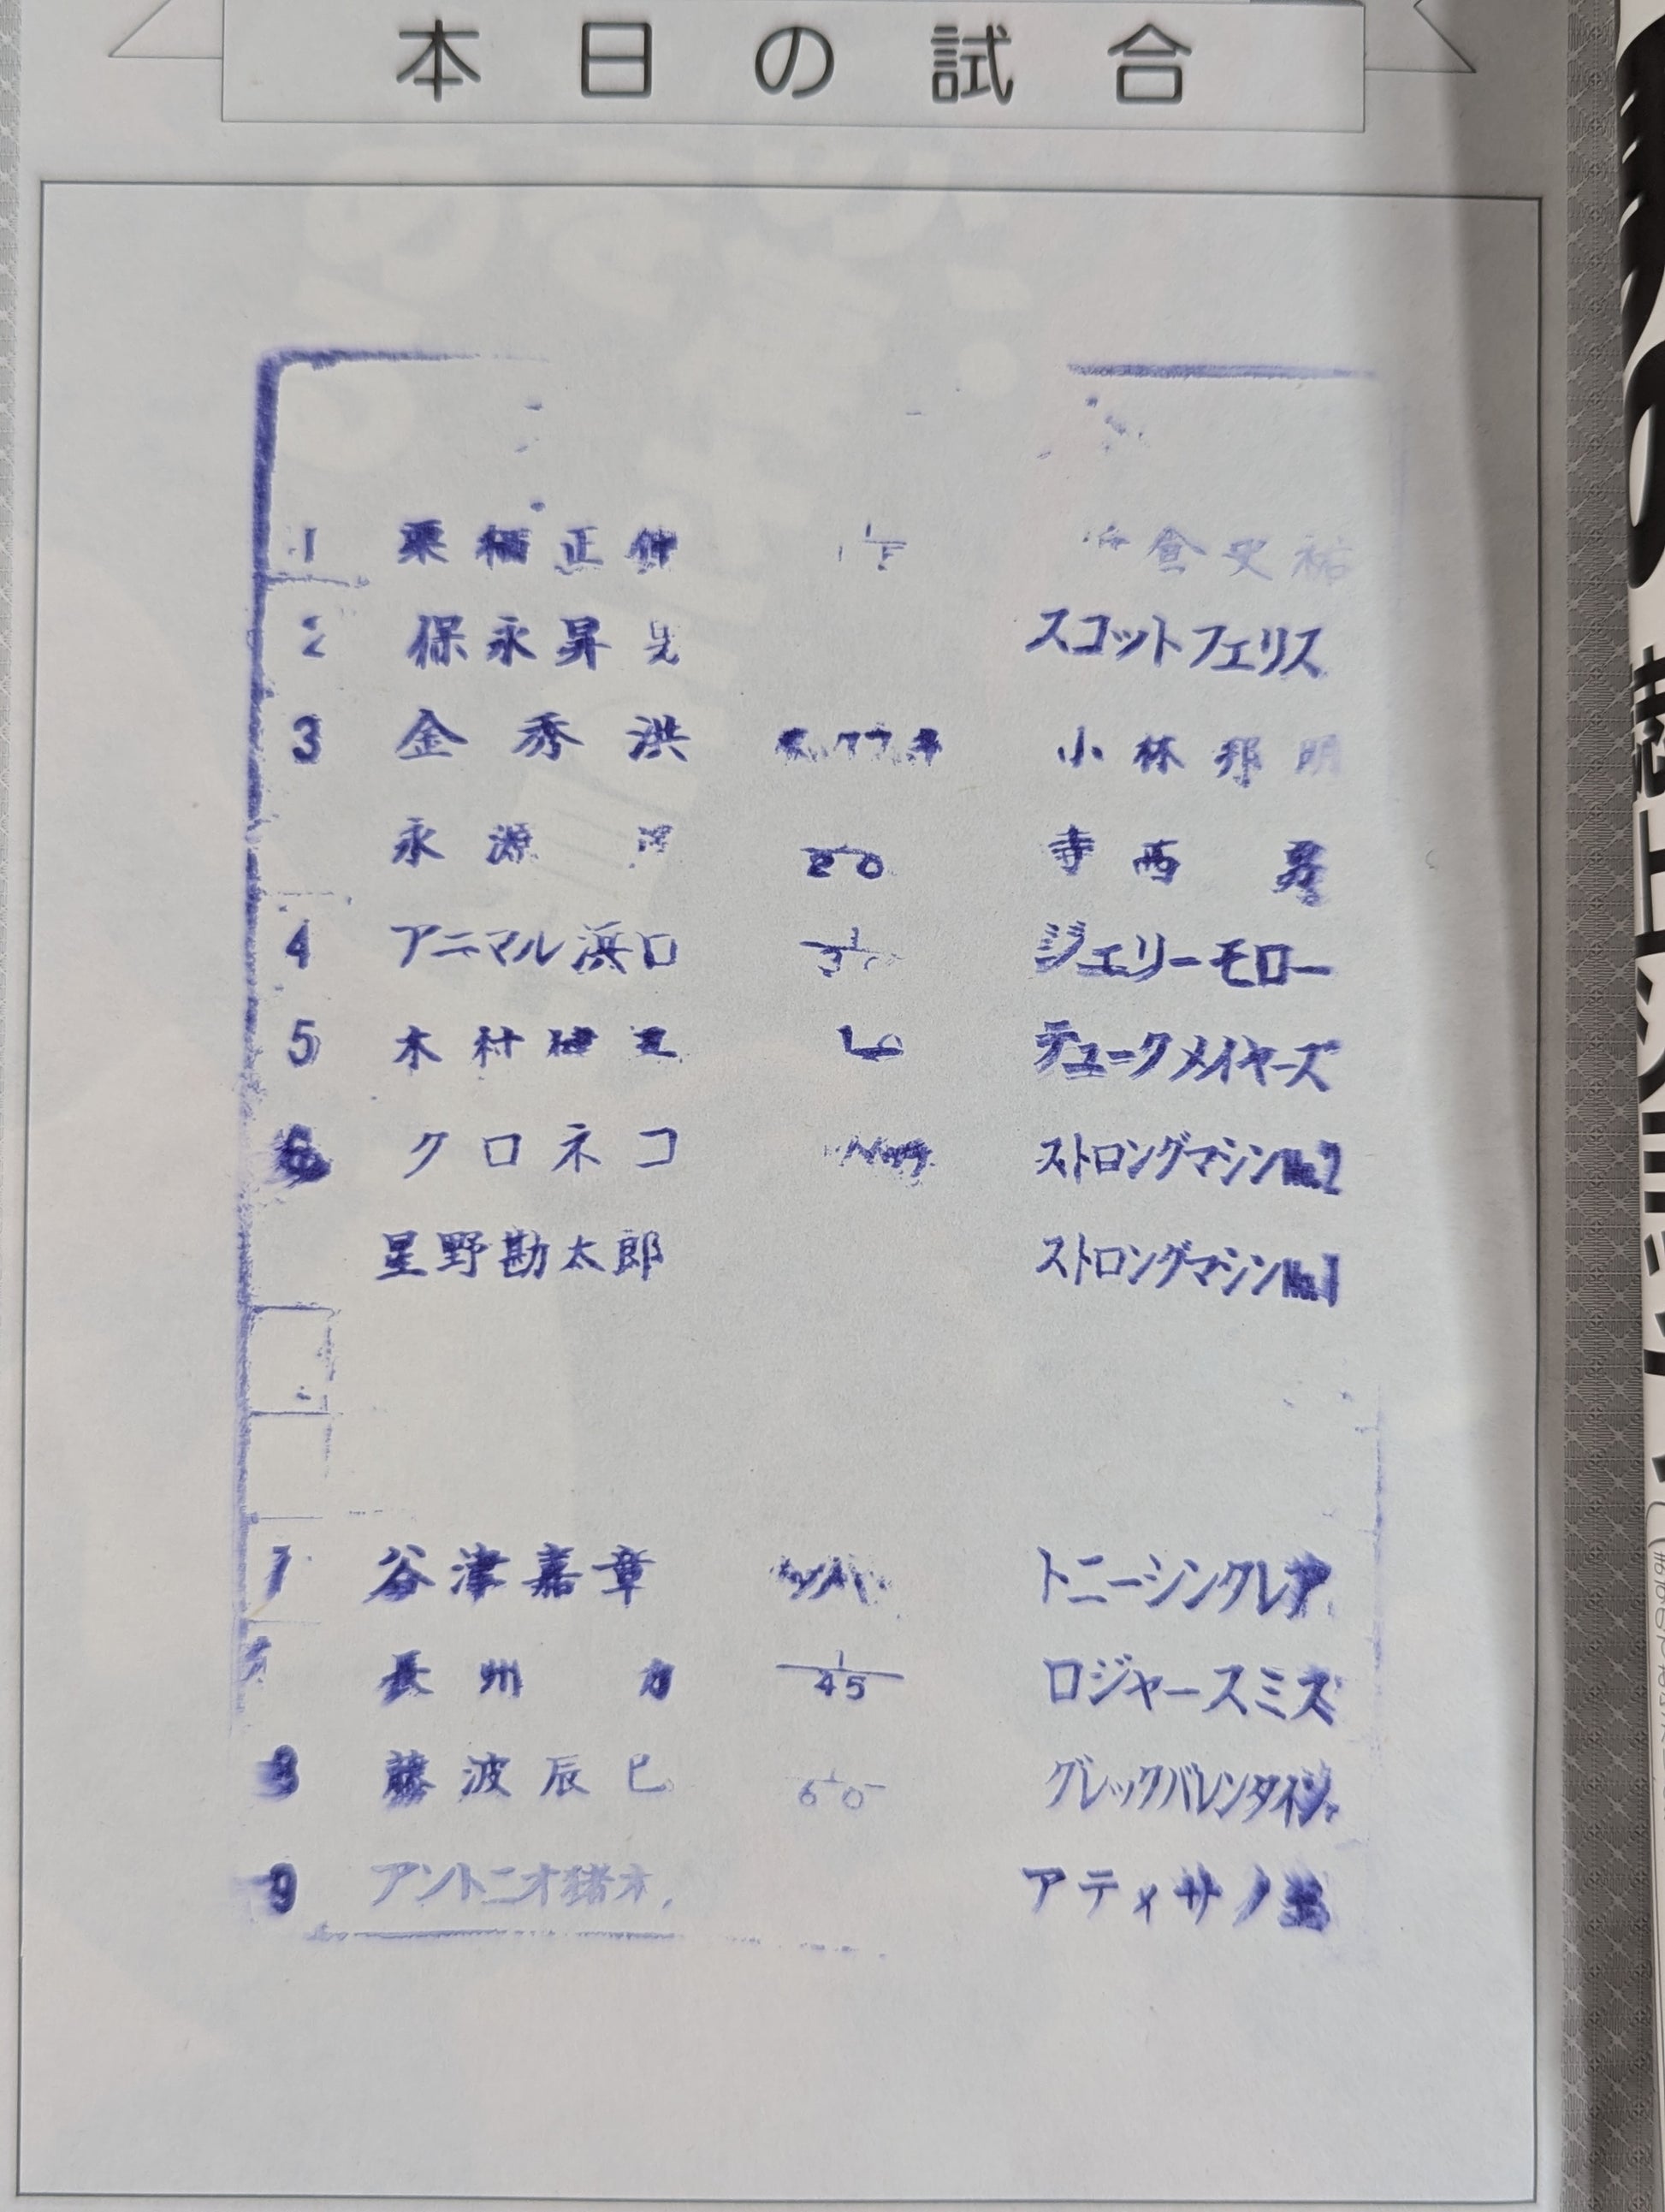 本日の試合
1 栗栖正伸 倉史祐
2 保永昇 スコットフェリス
3 金秀洪 小林邦明
永源 20 寺西勇
4 アニマル浜口 1 ジェリーモロー
5 木村健 デュークメイヤーズ
6 クロネコ ストロングマシンNo.2
星野勘太郎 ストロングマシンNo.1
7 谷津嘉章 トニーシンクレア
長州力 1/45 ロジャースミス
8 藤波辰巳 1/60 グレックバレンタイン
9 アントニオ猪木 アティサノ